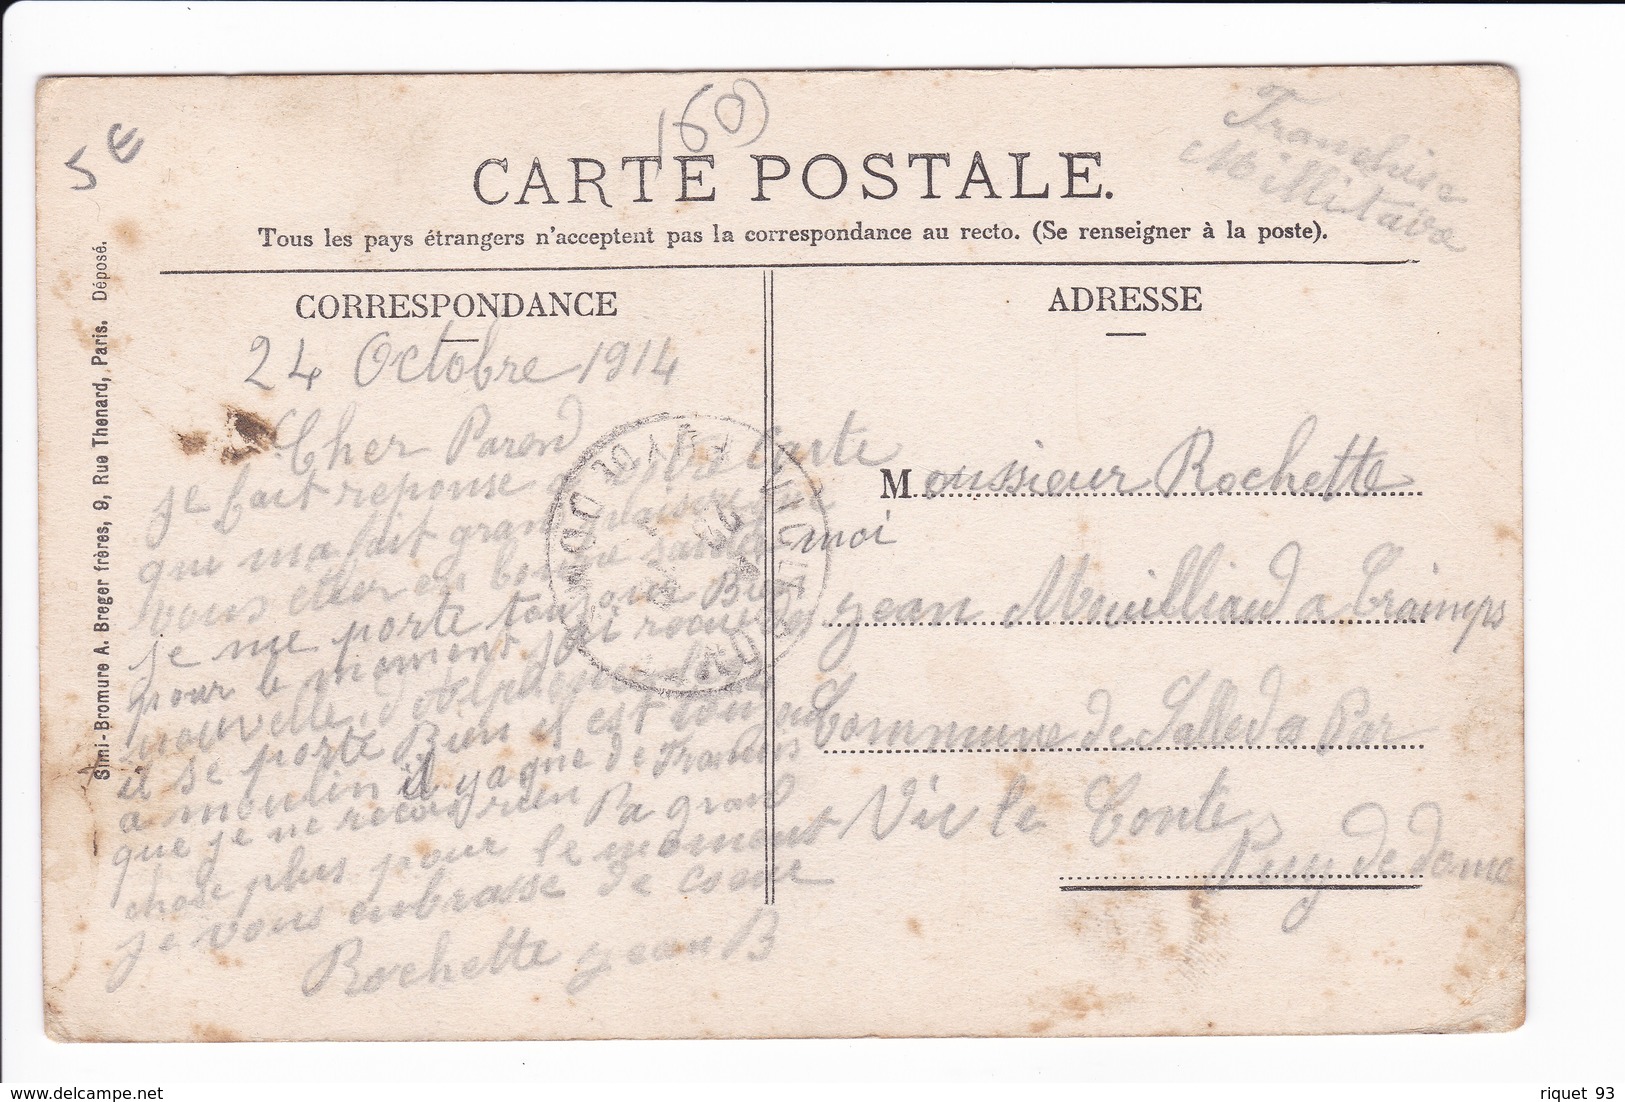 5 €
160
Franchise
Militaire
CARTE POSTALE.
Tous les pays étrangers n'acceptent pas la correspondance au recto. (Se renseigner à la poste).
CORRESPONDANCE
24 Octobre 1914
Cher Parend
je fait reponse a votre Carte
qui ma fait grand plaisir que
vous etter en bonne santer moi
je me porte toujour Bien
pour le moment j'ai recu des
nouvelle d'Alphonse
il se porte Bien il est toujour
a moulin il ya que de Francis
que je ne recoi rien Pa grand
chose plus pour le moment
je vous enbrasse de coeur
Rochette jean B
ADRESSE
Monssieur Rochette
jean Mouilliaud a
Commune de Salled a Par
Vic le Conte
Puy de dome
Simi-Bromure A. Breger frères, 9, Rue Thenard, Paris. Déposé.
riquet 93